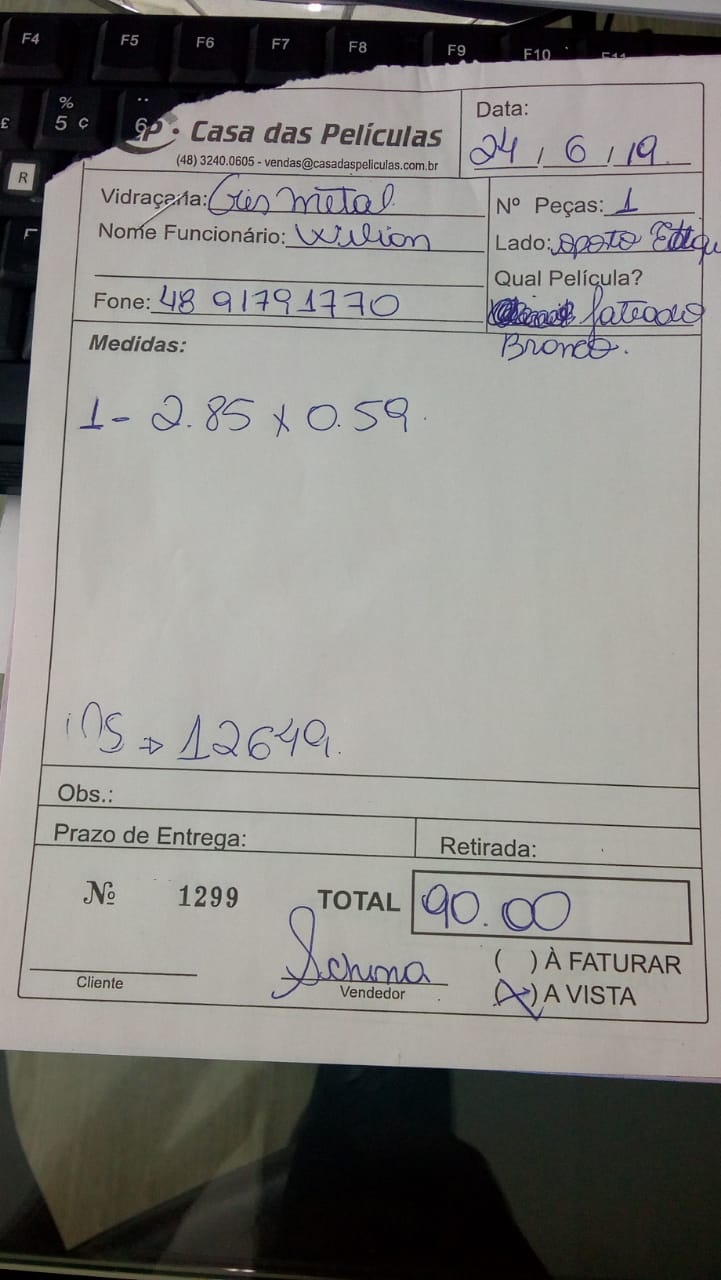 F4 F5 F6 F7 F8 F9 F10 F11
£ % 5 ¢ 6
R
F
Casa das Películas
(48) 3240.0605 - vendas@casadaspeliculas.com.br
Data:
24 / 6 / 19
Vidraçaria: Cris metal
Nº Peças: 1
Nome Funcionário: Wilion
Lado: oposto
Qual Película?
Fone: 48 91791770
Jateado
Branco.
Medidas:
1- 2.85 x 0.59.
ins ⇒ 12649.
Obs.:
Prazo de Entrega:
Retirada:
Nº 1299
TOTAL 90.00
( ) À FATURAR
Cliente
Vendedor
(X) A VISTA